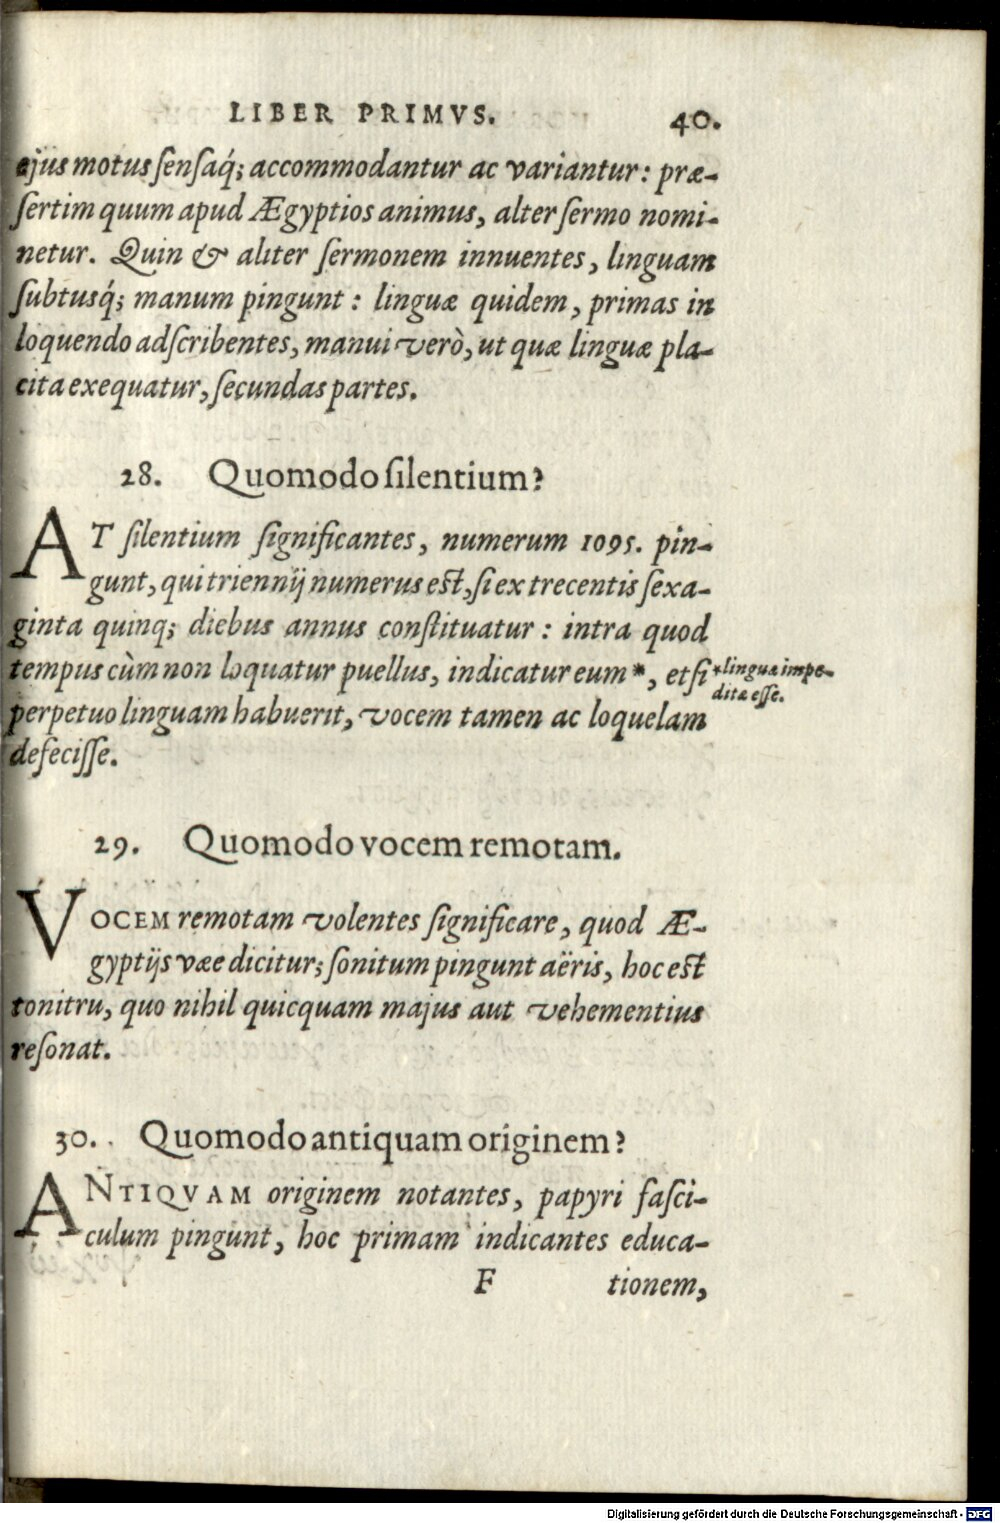 LIBER PRIMVS. 40.
ejus motus ſenſaq́; accommodantur ac variantur: præ-
ſertim quum apud Ægyptios animus, alter ſermo nomi-
netur. Quin & aliter ſermonem innuentes, linguam
ſubtusq́; manum pingunt: linguæ quidem, primas in
loquendo adſcribentes, manui verò, ut quæ linguæ pla-
cita exequatur, ſecundas partes.
28. Quomodo ſilentium?
AT ſilentium ſignificantes, numerum 1095. pin-
gunt, qui triennij numerus eſt, ſi ex trecentis ſexa-
ginta quinq; diebus annus conſtituatur: intra quod
tempus cùm non loquatur puellus, indicatur eum *, et ſi
*linguæ impe-
ditæ eſſe.
perpetuo linguam habuerit, vocem tamen ac loquelam
defeciſſe.
29. Quomodo vocem remotam.
VOCEM remotam volentes ſignificare, quod Æ-
gyptijs væe dicitur; ſonitum pingunt aëris, hoc eſt
tonitru, quo nihil quicquam majus aut vehementius
reſonat.
30. Quomodo antiquam originem?
ANTIQVAM originem notantes, papyri faſci-
culum pingunt, hoc primam indicantes educa-
F tionem,
Digitalisierung gefördert durch die Deutsche Forschungsgemeinschaft - DFG